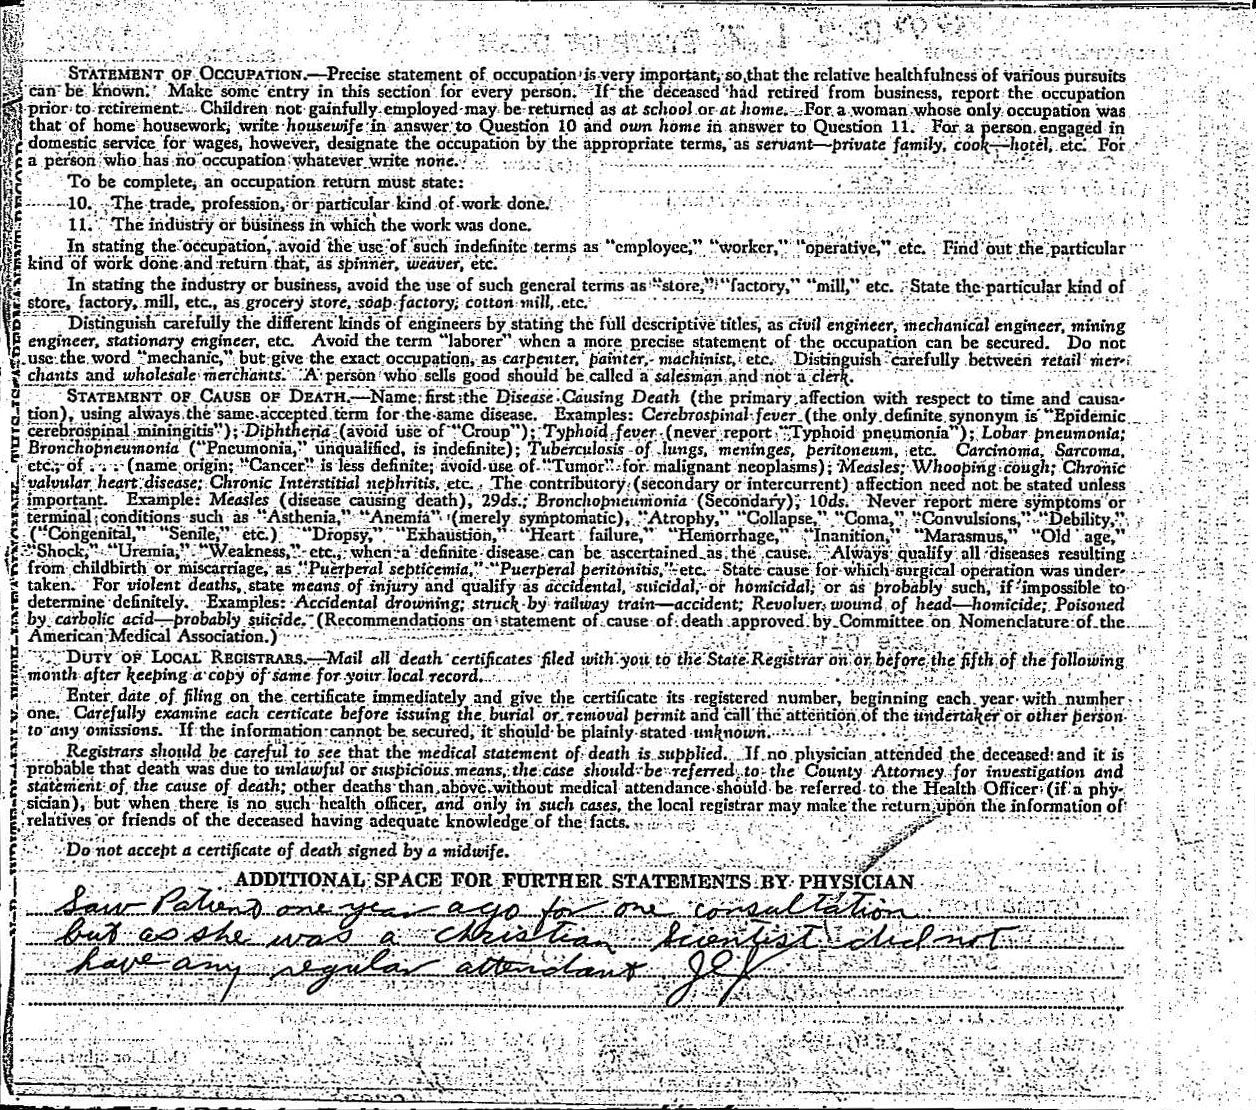 STATEMENT OF OCCUPATION.—Precise statement of occupation is very important, so that the relative healthfulness of various pursuits
can be known. Make some entry in this section for every person. If the deceased had retired from business, report the occupation
prior to retirement. Children not gainfully employed may be returned as at school or at home. For a woman whose only occupation was
that of home housework, write housewife in answer to Question 10 and own home in answer to Question 11. For a person engaged in
domestic service for wages, however, designate the occupation by the appropriate terms, as servant—private family, cook—hotel, etc. For
a person who has no occupation whatever write none.
To be complete, an occupation return must state:
10. The trade, profession, or particular kind of work done.
11. The industry or business in which the work was done.
In stating the occupation, avoid the use of such indefinite terms as "employee," "worker," "operative," etc. Find out the particular
kind of work done and return that, as spinner, weaver, etc.
In stating the industry or business, avoid the use of such general terms as "store," "factory," "mill," etc. State the particular kind of
store, factory, mill, etc., as grocery store, soap factory, cotton mill, etc.
Distinguish carefully the different kinds of engineers by stating the full descriptive titles, as civil engineer, mechanical engineer, mining
engineer, stationary engineer, etc. Avoid the term "laborer" when a more precise statement of the occupation can be secured. Do not
use the word "mechanic," but give the exact occupation, as carpenter, painter, machinist, etc. Distinguish carefully between retail mer-
chants and wholesale merchants. A person who sells good should be called a salesman and not a clerk.
STATEMENT OF CAUSE OF DEATH.—Name first the Disease Causing Death (the primary affection with respect to time and causa-
tion), using always the same accepted term for the same disease. Examples: Cerebrospinal fever (the only definite synonym is "Epidemic
cerebrospinal miningitis"); Diphtheria (avoid use of "Croup"); Typhoid fever (never report "Typhoid pneumonia"); Lobar pneumonia;
Bronchopneumonia ("Pneumonia," unqualified, is indefinite); Tuberculosis of lungs, meninges, peritoneum, etc. Carcinoma, Sarcoma,
etc., of . . . (name origin; "Cancer" is less definite; avoid use of "Tumor" for malignant neoplasms); Measles; Whooping cough; Chronic
valvular heart disease; Chronic Interstitial nephritis, etc. The contributory (secondary or intercurrent) affection need not be stated unless
important. Example: Measles (disease causing death), 29ds.; Bronchopneumonia (Secondary), 10ds. Never report mere symptoms or
terminal conditions such as "Asthenia," "Anemia" (merely symptomatic), "Atrophy," "Collapse," "Coma," "Convulsions," "Debility,"
("Congenital," "Senile," etc.) "Dropsy," "Exhaustion," "Heart failure," "Hemorrhage," "Inanition," "Marasmus," "Old age,"
"Shock," "Uremia," "Weakness," etc., when a definite disease can be ascertained as the cause. Always qualify all diseases resulting
from childbirth or miscarriage, as "Puerperal septicemia," "Puerperal peritonitis," etc. State cause for which surgical operation was under-
taken. For violent deaths, state means of injury and qualify as accidental, suicidal, or homicidal; or as probably such, if impossible to
determine definitely. Examples: Accidental drowning; struck by railway train—accident; Revolver wound of head—homicide; Poisoned
by carbolic acid—probably suicide. (Recommendations on statement of cause of death approved by Committee on Nomenclature of the
American Medical Association.)
DUTY OF LOCAL REGISTRARS.—Mail all death certificates filed with you to the State Registrar on or before the fifth of the following
month after keeping a copy of same for your local record.
Enter date of filing on the certificate immediately and give the certificate its registered number, beginning each year with number
one. Carefully examine each certicate before issuing the burial or removal permit and call the attention of the undertaker or other person
to any omissions. If the information cannot be secured, it should be plainly stated unknown.
Registrars should be careful to see that the medical statement of death is supplied. If no physician attended the deceased and it is
probable that death was due to unlawful or suspicious means, the case should be referred to the County Attorney for investigation and
statement of the cause of death; other deaths than above without medical attendance should be referred to the Health Officer (if a phy-
sician), but when there is no such health officer, and only in such cases, the local registrar may make the return upon the information of
relatives or friends of the deceased having adequate knowledge of the facts.
Do not accept a certificate of death signed by a midwife.
ADDITIONAL SPACE FOR FURTHER STATEMENTS BY PHYSICIAN
Saw Patient one year ago for one consultation
but as she was a Christian Scientist did not
have any regular attendant